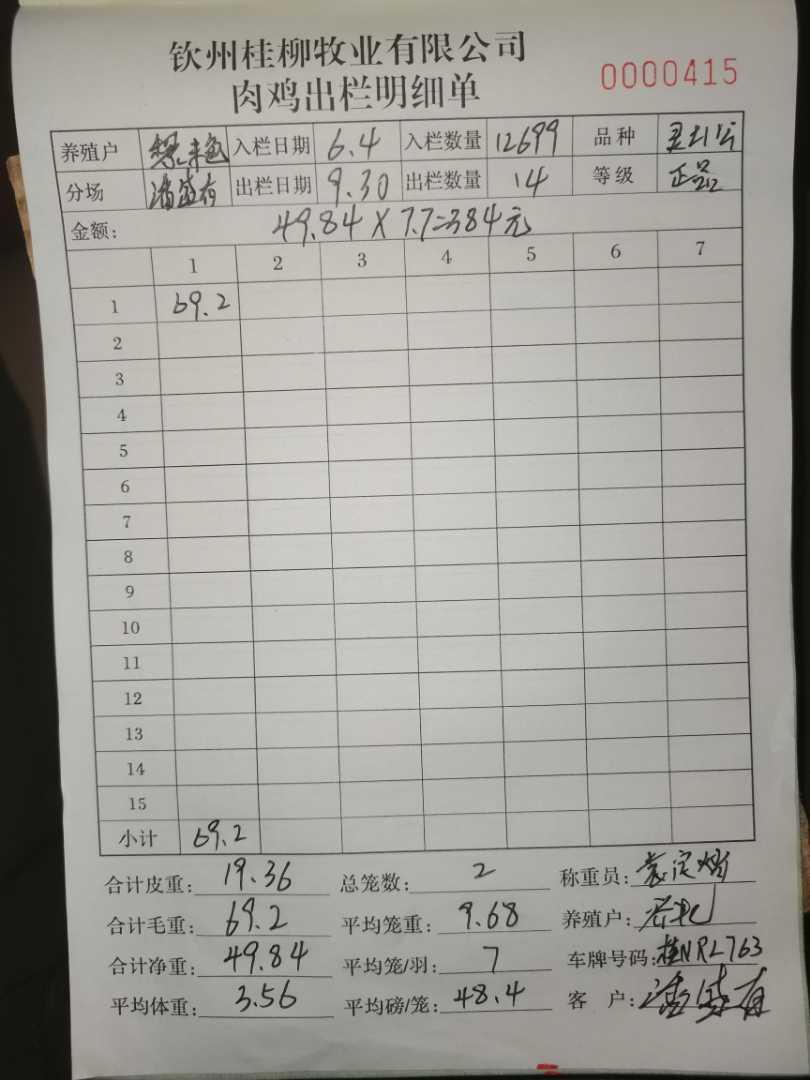 钦州桂柳牧业有限公司
肉鸡出栏明细单 0000415
养殖户 入栏日期 6.4 入栏数量 12699 品种
分场 出栏日期 9.30 出栏数量 14 等级 正品
金额: 49.84 X 7.7=384元
1 2 3 4 5 6 7
1 69.2
2
3
4
5
6
7
8
9
10
11
12
13
14
15
小计 69.2
合计皮重: 19.36 总笼数: 2 称重员:
合计毛重: 69.2 平均笼重: 9.68 养殖户:
合计净重: 49.84 平均笼/羽: 7 车牌号码: 桂NRL763
平均体重: 3.56 平均磅/笼: 48.4 客 户: